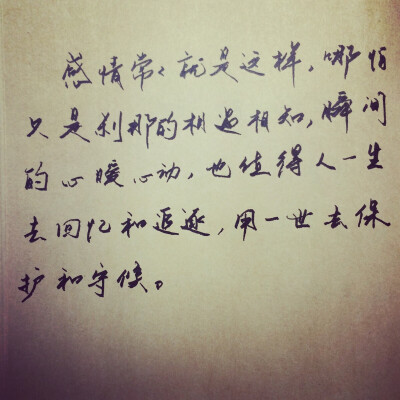 感情常々就是这样，哪怕
只是刹那的相遇相知，瞬间
的心暖心动，也值得人一生
去回忆和追逐，用一世去保
护和守候。